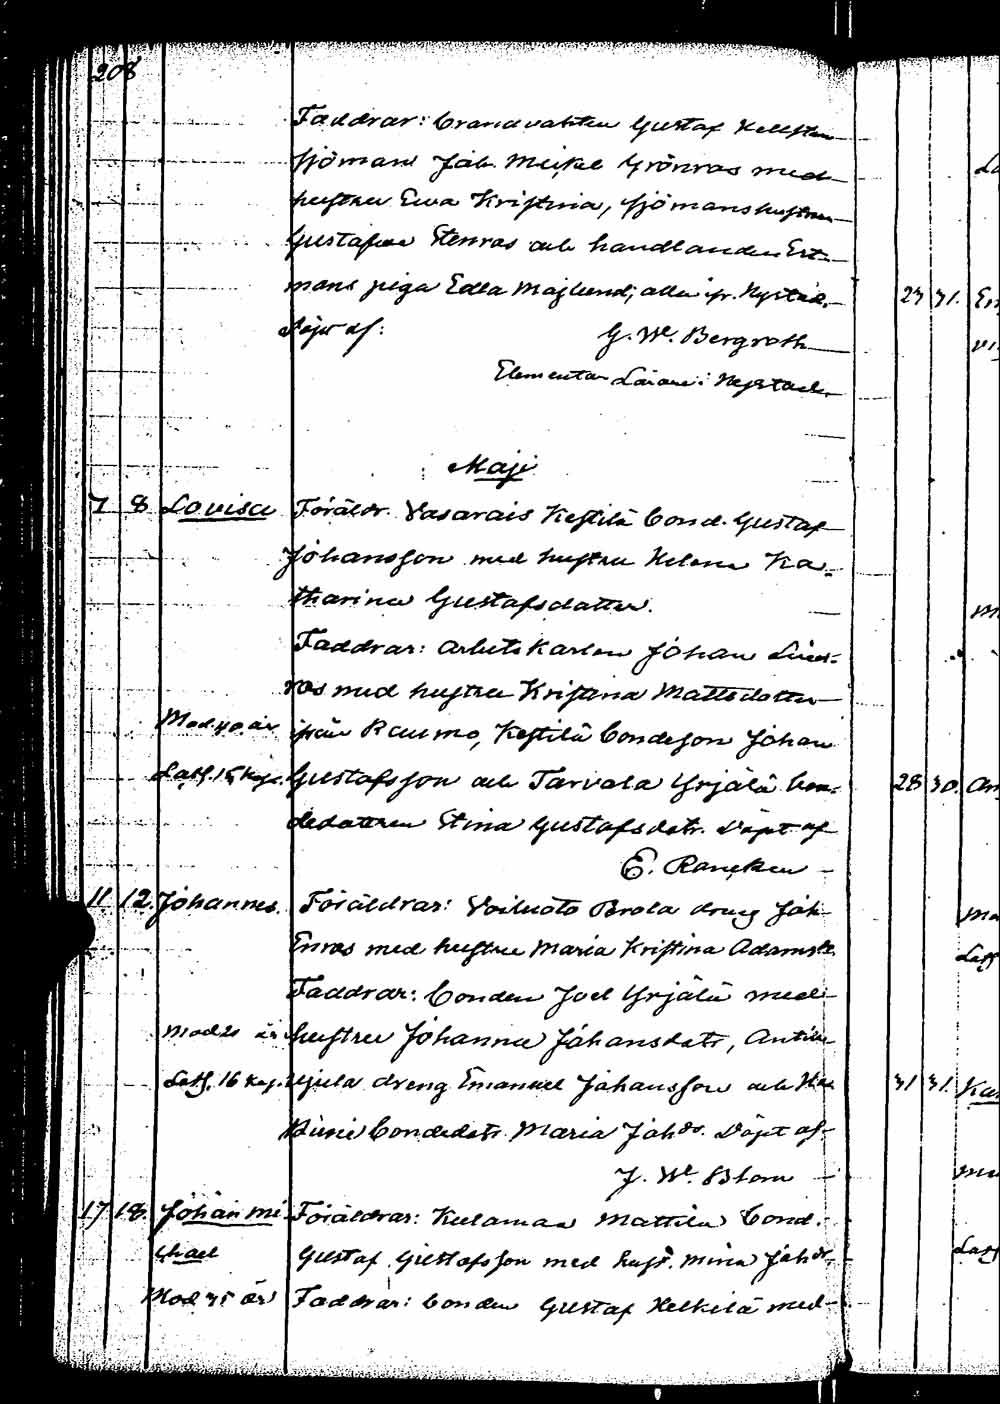 208
Faddrar: Brandvakten Gustaf Hellsten
sjöman Joh. Mickel Grönroos med
hustru Ewa Kristina, sjömanshustrun
Gustafva Stenros och handlanden Ert-
mans piga Edla Majlund; alla ifr. Nystad.
Döpt af: G. W. Bergroth
Elementar Lärare i Nystad.
Maji
7 8 Lovisa Föräldr. Vasarais Kestilä bond. Gustaf
Johansson med hustru Helena Ka-
tharina Gustafsdotter.
Faddrar: Arbets Karlen Johan Lind-
ros med hustru Kristina Mattsdotter
Mod. 40 år ifrån Raumo, Kestilä bondeson Johan
Gustafsson och Tarvola Yrjälä bon-
dedottren Stina Gustafsdotr. Döpt af
E. Rancken
11 12. Johannes. Föräldrar: Voiluoto Prola dreng Joh.
Enros med hustru Maria Kristina Adamsdr.
Faddrar: bonden Joel Yrjälä med
Mod 21 år hustru Johanna Johansdotr, Antila
dreng Emanuel Johansson och
bondedotr Maria Johdr. Döpt af
J. W. Blom
17 18. Johan Mi- Föräldrar: Kulamaa Mattila bond.
chael Gustaf Gustafsson med hust. Mina Johdr.
Mod 35 år Faddrar: bonden Gustaf Heikilä med
23 31.
28 30.
31 31.